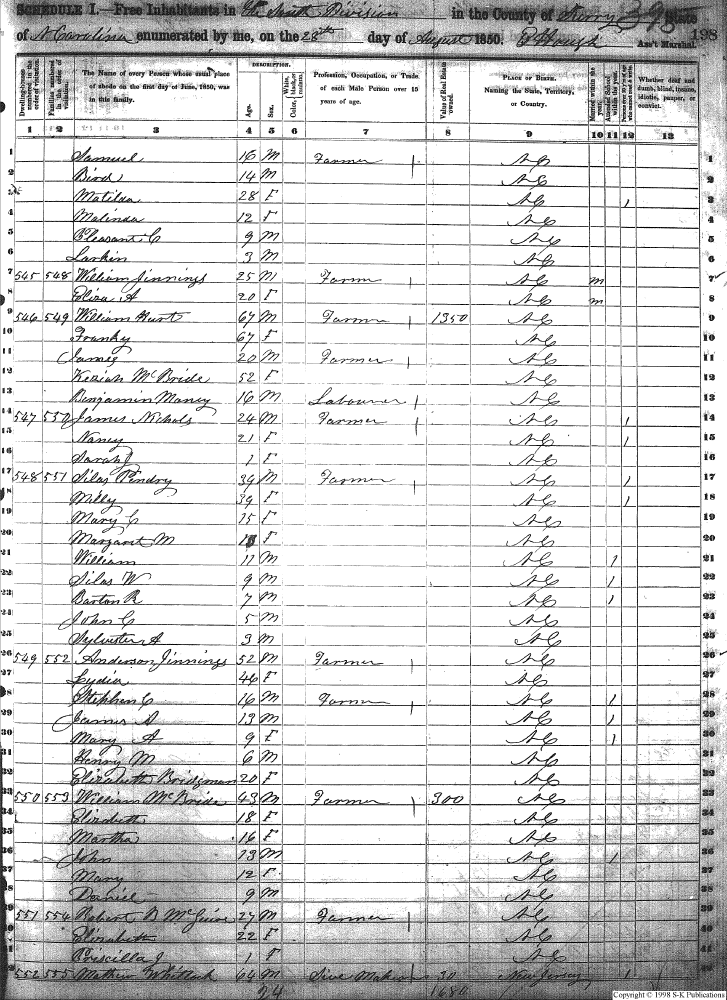 SCHEDULE I.—Free Inhabitants in the South Division in the County of Surry State
of N Carolina enumerated by me, on the 28th day of August 1850. E Hough Ass't Marshal. 198
Dwelling-houses numbered in the order of visitation.
Families numbered in the order of visitation.
The Name of every Person whose usual place of abode on the first day of June, 1850, was in this family.
DESCRIPTION.
Age.
Sex.
Color, White, black, or mulatto.
Profession, Occupation, or Trade of each Male Person over 15 years of age.
Value of Real Estate owned.
PLACE OF BIRTH. Naming the State, Territory, or Country.
Married within the year.
Attended School within the year.
Whether deaf and dumb, blind, insane, idiotic, pauper, or convict.
1 2 3 4 5 6 7 8 9 10 11 12 13
1 Samuel 16 M Farmer NC 1
2 Bird 14 M NC 2
3 Matilda 28 F NC 1 3
4 Malinda 12 F NC 4
5 Pleasant C 9 M NC 5
6 Larkin 3 M NC 6
7 545 548 William Jinnings 25 M Farmer NC m 7
8 Eliza A 20 F NC m 8
9 546 549 William Hurt 67 M Farmer 1350 NC 9
10 Franky 67 F NC 10
11 James 20 M Farmer NC 11
12 Keziah McBride 52 F NC 12
13 Benjamin Maney 16 M Labourer NC 13
14 547 550 James Nichols 24 M Farmer NC 1 14
15 Nancy 21 F NC 1 15
16 Sarah J 1 F NC 16
17 548 551 Silas Pendry 39 M Farmer NC 1 17
18 Milly 39 F NC 1 18
19 Mary C 15 F NC 19
20 Margaret M F NC 20
21 William 11 M NC 1 21
22 Silas W 9 M NC 1 22
23 Barton R 7 M NC 1 23
24 John C 5 M NC 24
25 Sylvester A 3 M NC 25
26 549 552 Anderson Jinnings 52 M Farmer NC 26
27 Lydia 46 F NC 27
28 Stephen C 16 M Farmer NC 1 28
29 James D 13 M NC 1 29
30 Mary A 9 F NC 1 30
31 Henry M 6 M NC 31
32 Elizabeth Bridgman 20 F NC 32
33 550 553 William McBride 43 M Farmer 300 NC 33
34 Elizabeth 18 F NC 34
35 Martha 16 F NC 35
36 John 13 M NC 1 36
37 Mary 12 F NC 37
38 Daniel 9 M NC 38
39 551 554 Robert B McGuire 27 M Farmer NC 39
40 Elizabeth 22 F NC 40
41 Priscilla J 1 F NC 41
42 552 555 Mathew Whitlock 64 M Sive Maker 30 New Jersey 1 42
24 1680
Copyright © 1998 S-K Publications